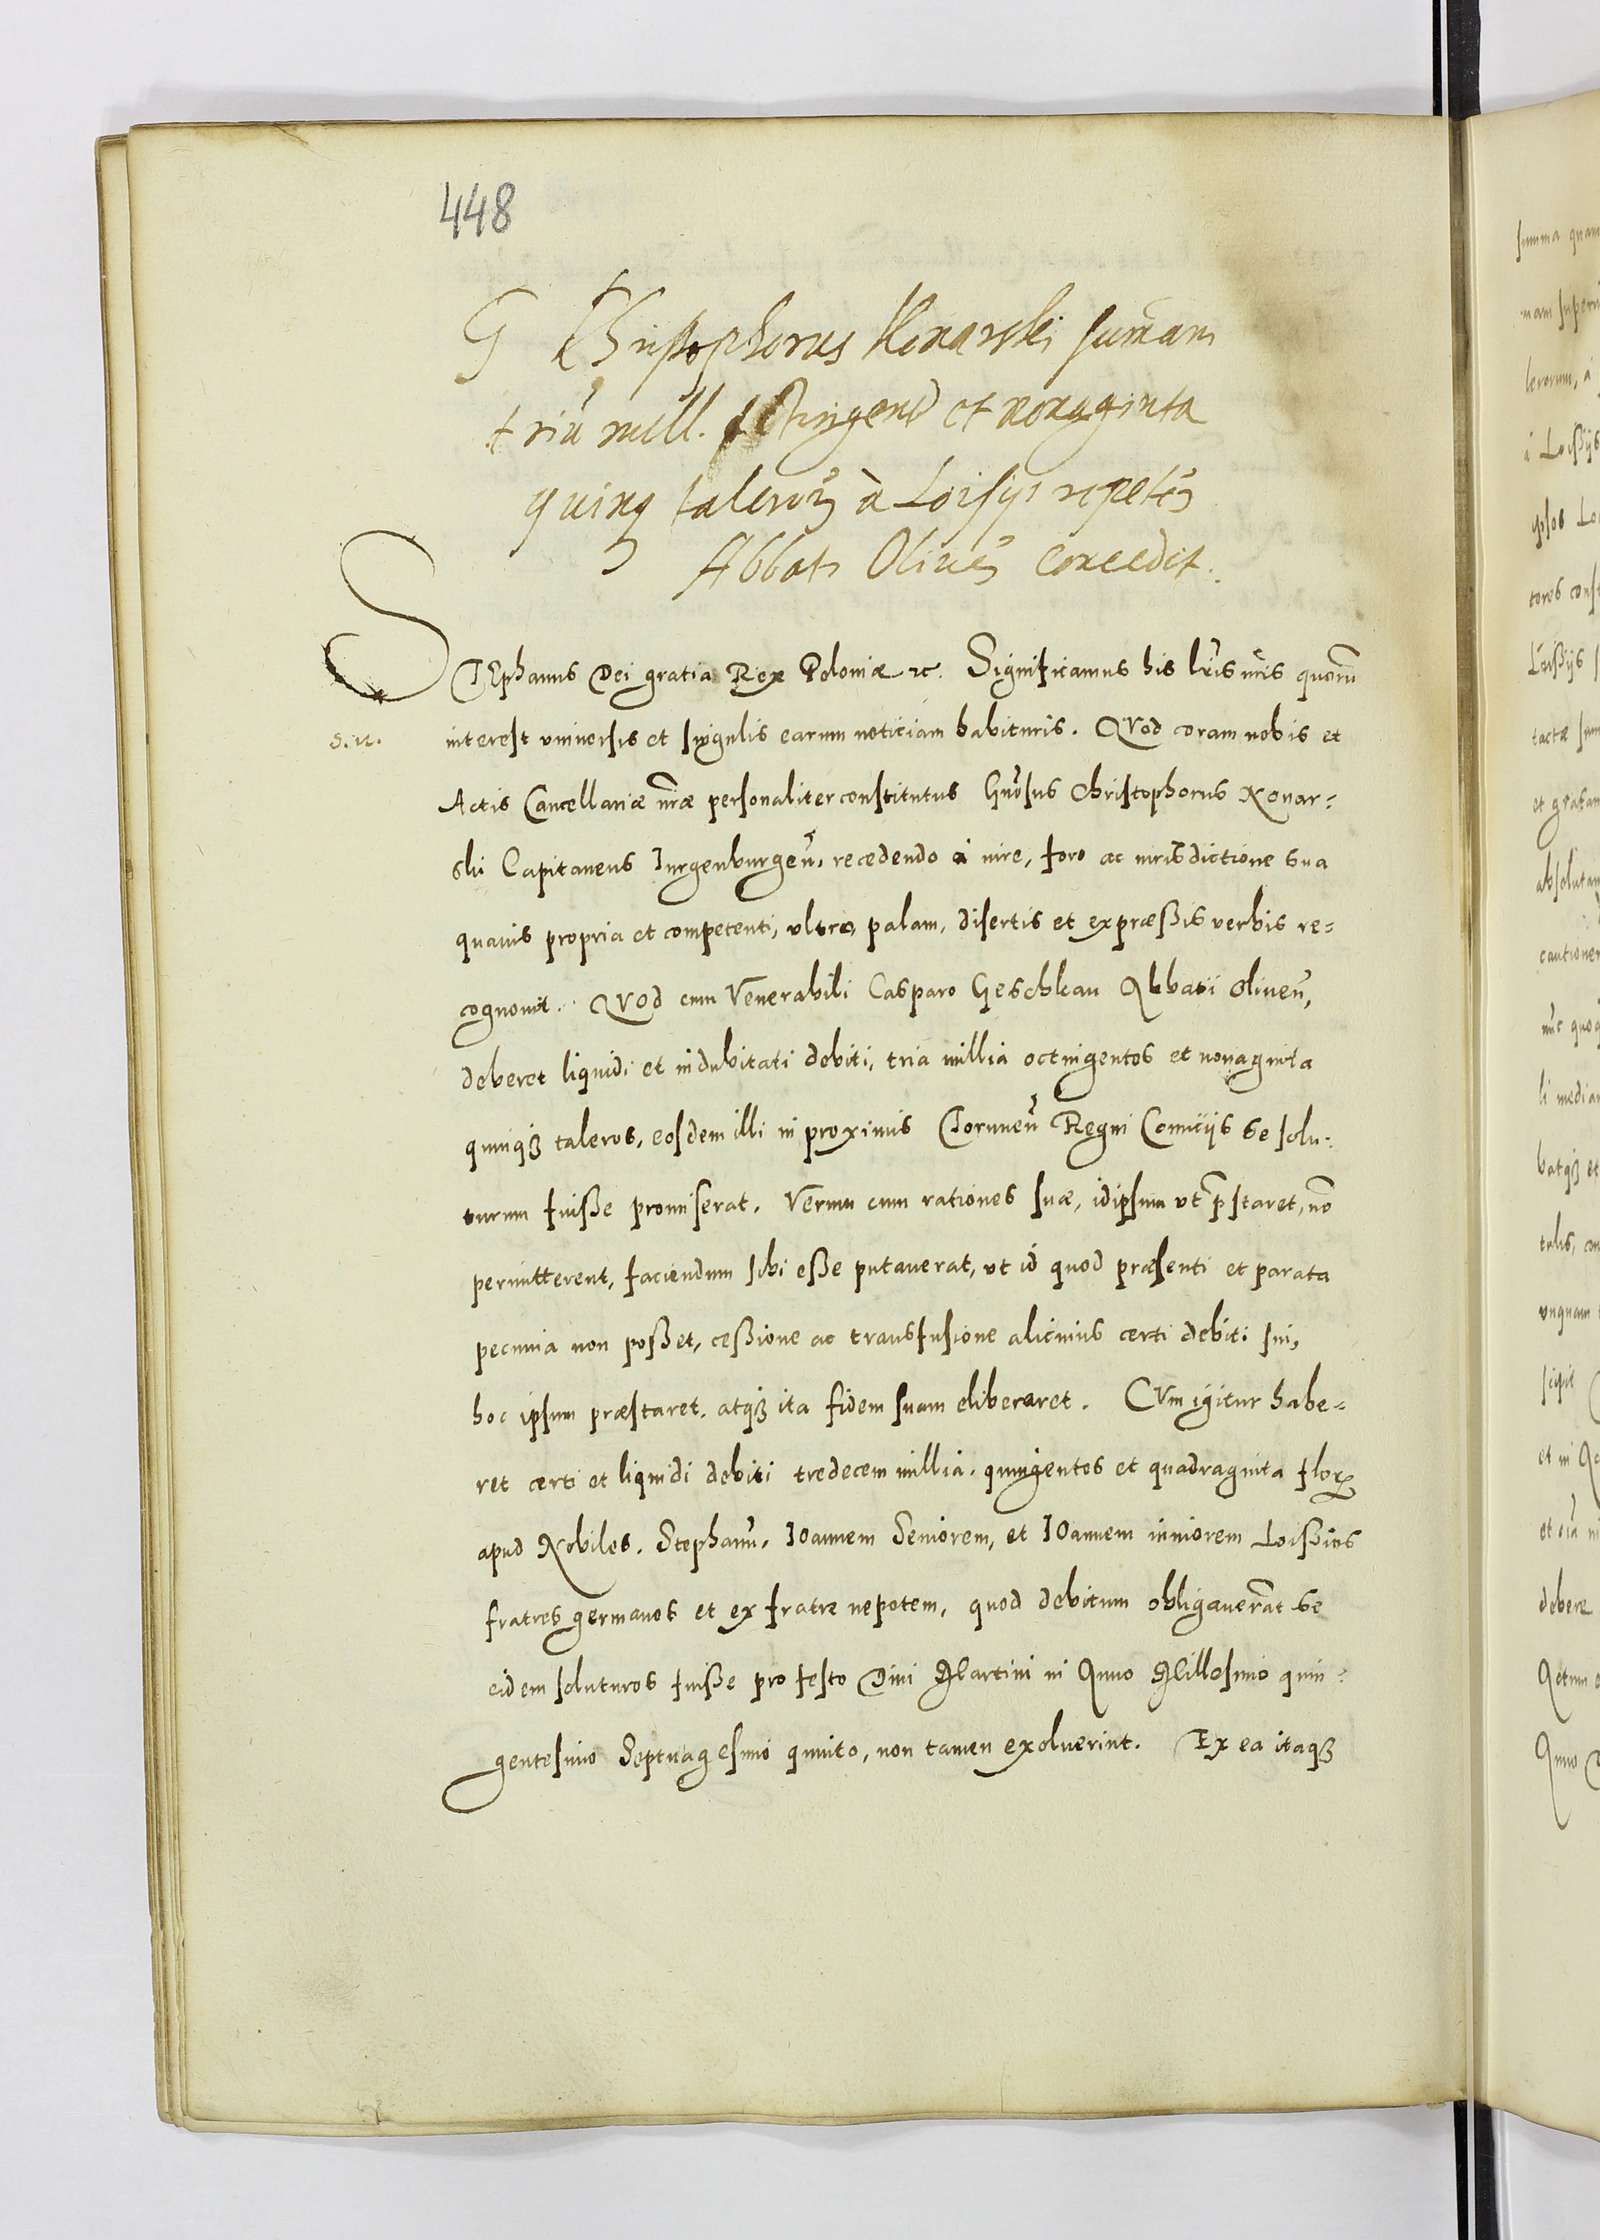 448
G Christophorus Konarski sum̃am
triũ mill. octingent et nonaginta
quinq talerorũ à Loisijs repetẽ
Abbati Olivẽ concedit.
STEphanus Dei gratia Rex Poloniæ ec. Significamus his lr̃is nr̃is quorũ
interest vniuersis et singulis earum noticiam habituris. QVod coram nobis et
Actis Cancellariæ nr̃æ personaliter constitutus Gnõsus Christophorus Konar=
ski Capitaneus Jurgenburgeñ, recedendo à iure, foro ac iurisdictione sua
quauis propria et competenti, vltro, palam, disertis et expræssis verbis re=
cognouit. QVOd cum Venerabili Casparo Geschkau Abbati Oliueñ,
deberet liquidi et indubitati debiti, tria millia octingentos et nonaginta
quinqʒ taleros, eosdem illi in proximis Toruneñ Regni Comitijs se solu=
turum fuisse promiserat. Verum cum rationes suæ, idipsum vt p̃staret, nõ
permitterent, faciendum sibi esse putauerat, vt id quod præsenti et parata
pecunia non posset, cessione ac transfusione alicuius certi debiti sui,
hoc ipsum præstaret, atqʒ ita fidem suam eliberaret. CVm igitur habe=
ret certi et liquidi debiti tredecem millia, quingentos et quadraginta flor
apud Nobiles, Stephanũ, IOannem Seniorem, et IOannem iuniorem Loissios
fratres germanos et ex fratre nepotem, quod debitum obligauerãt se
eidem soluturos fuisse pro festo Diui Martini in Anno Millesimo quin=
gentesimo Septuagesimo quinto, non tamen exoluerint. Ex ea itaqʒ